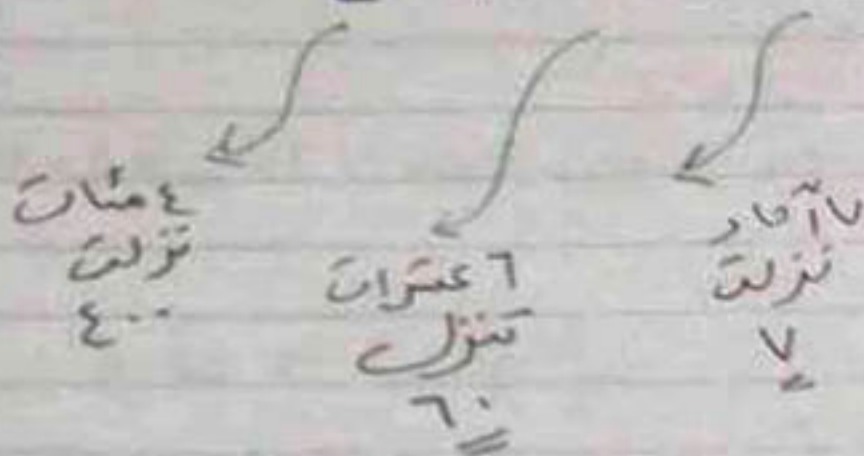 ٧ آحاد
نزلت
٧
٦ عشرات
تنزل
٦٠
٤ مئات
نزلت
٤٠٠